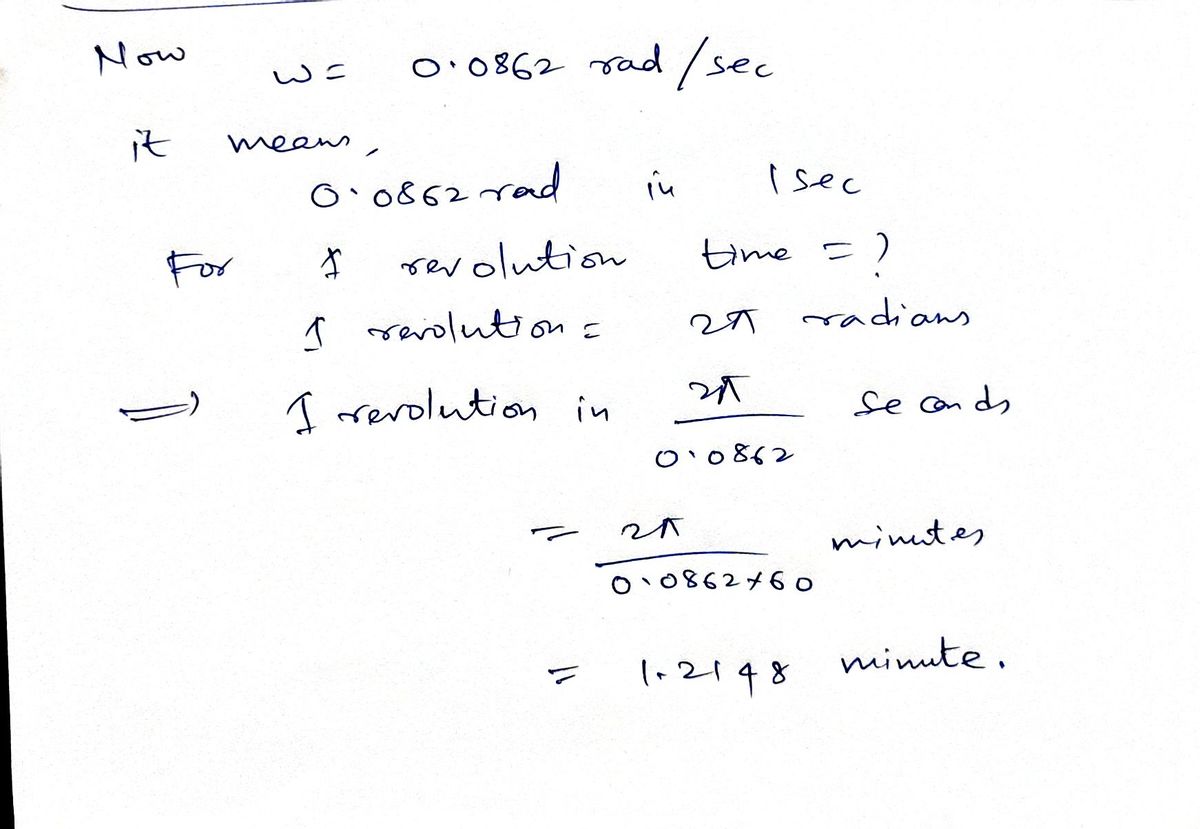 Now w = 0.0862 rad/sec
it means,
0.0862 rad in 1 sec
For 1 revolution time = ?
1 revolution = 2π radians
=> 1 revolution in 2π / 0.0862 seconds
= 2π / 0.0862×60 minutes
= 1.2148 minute.